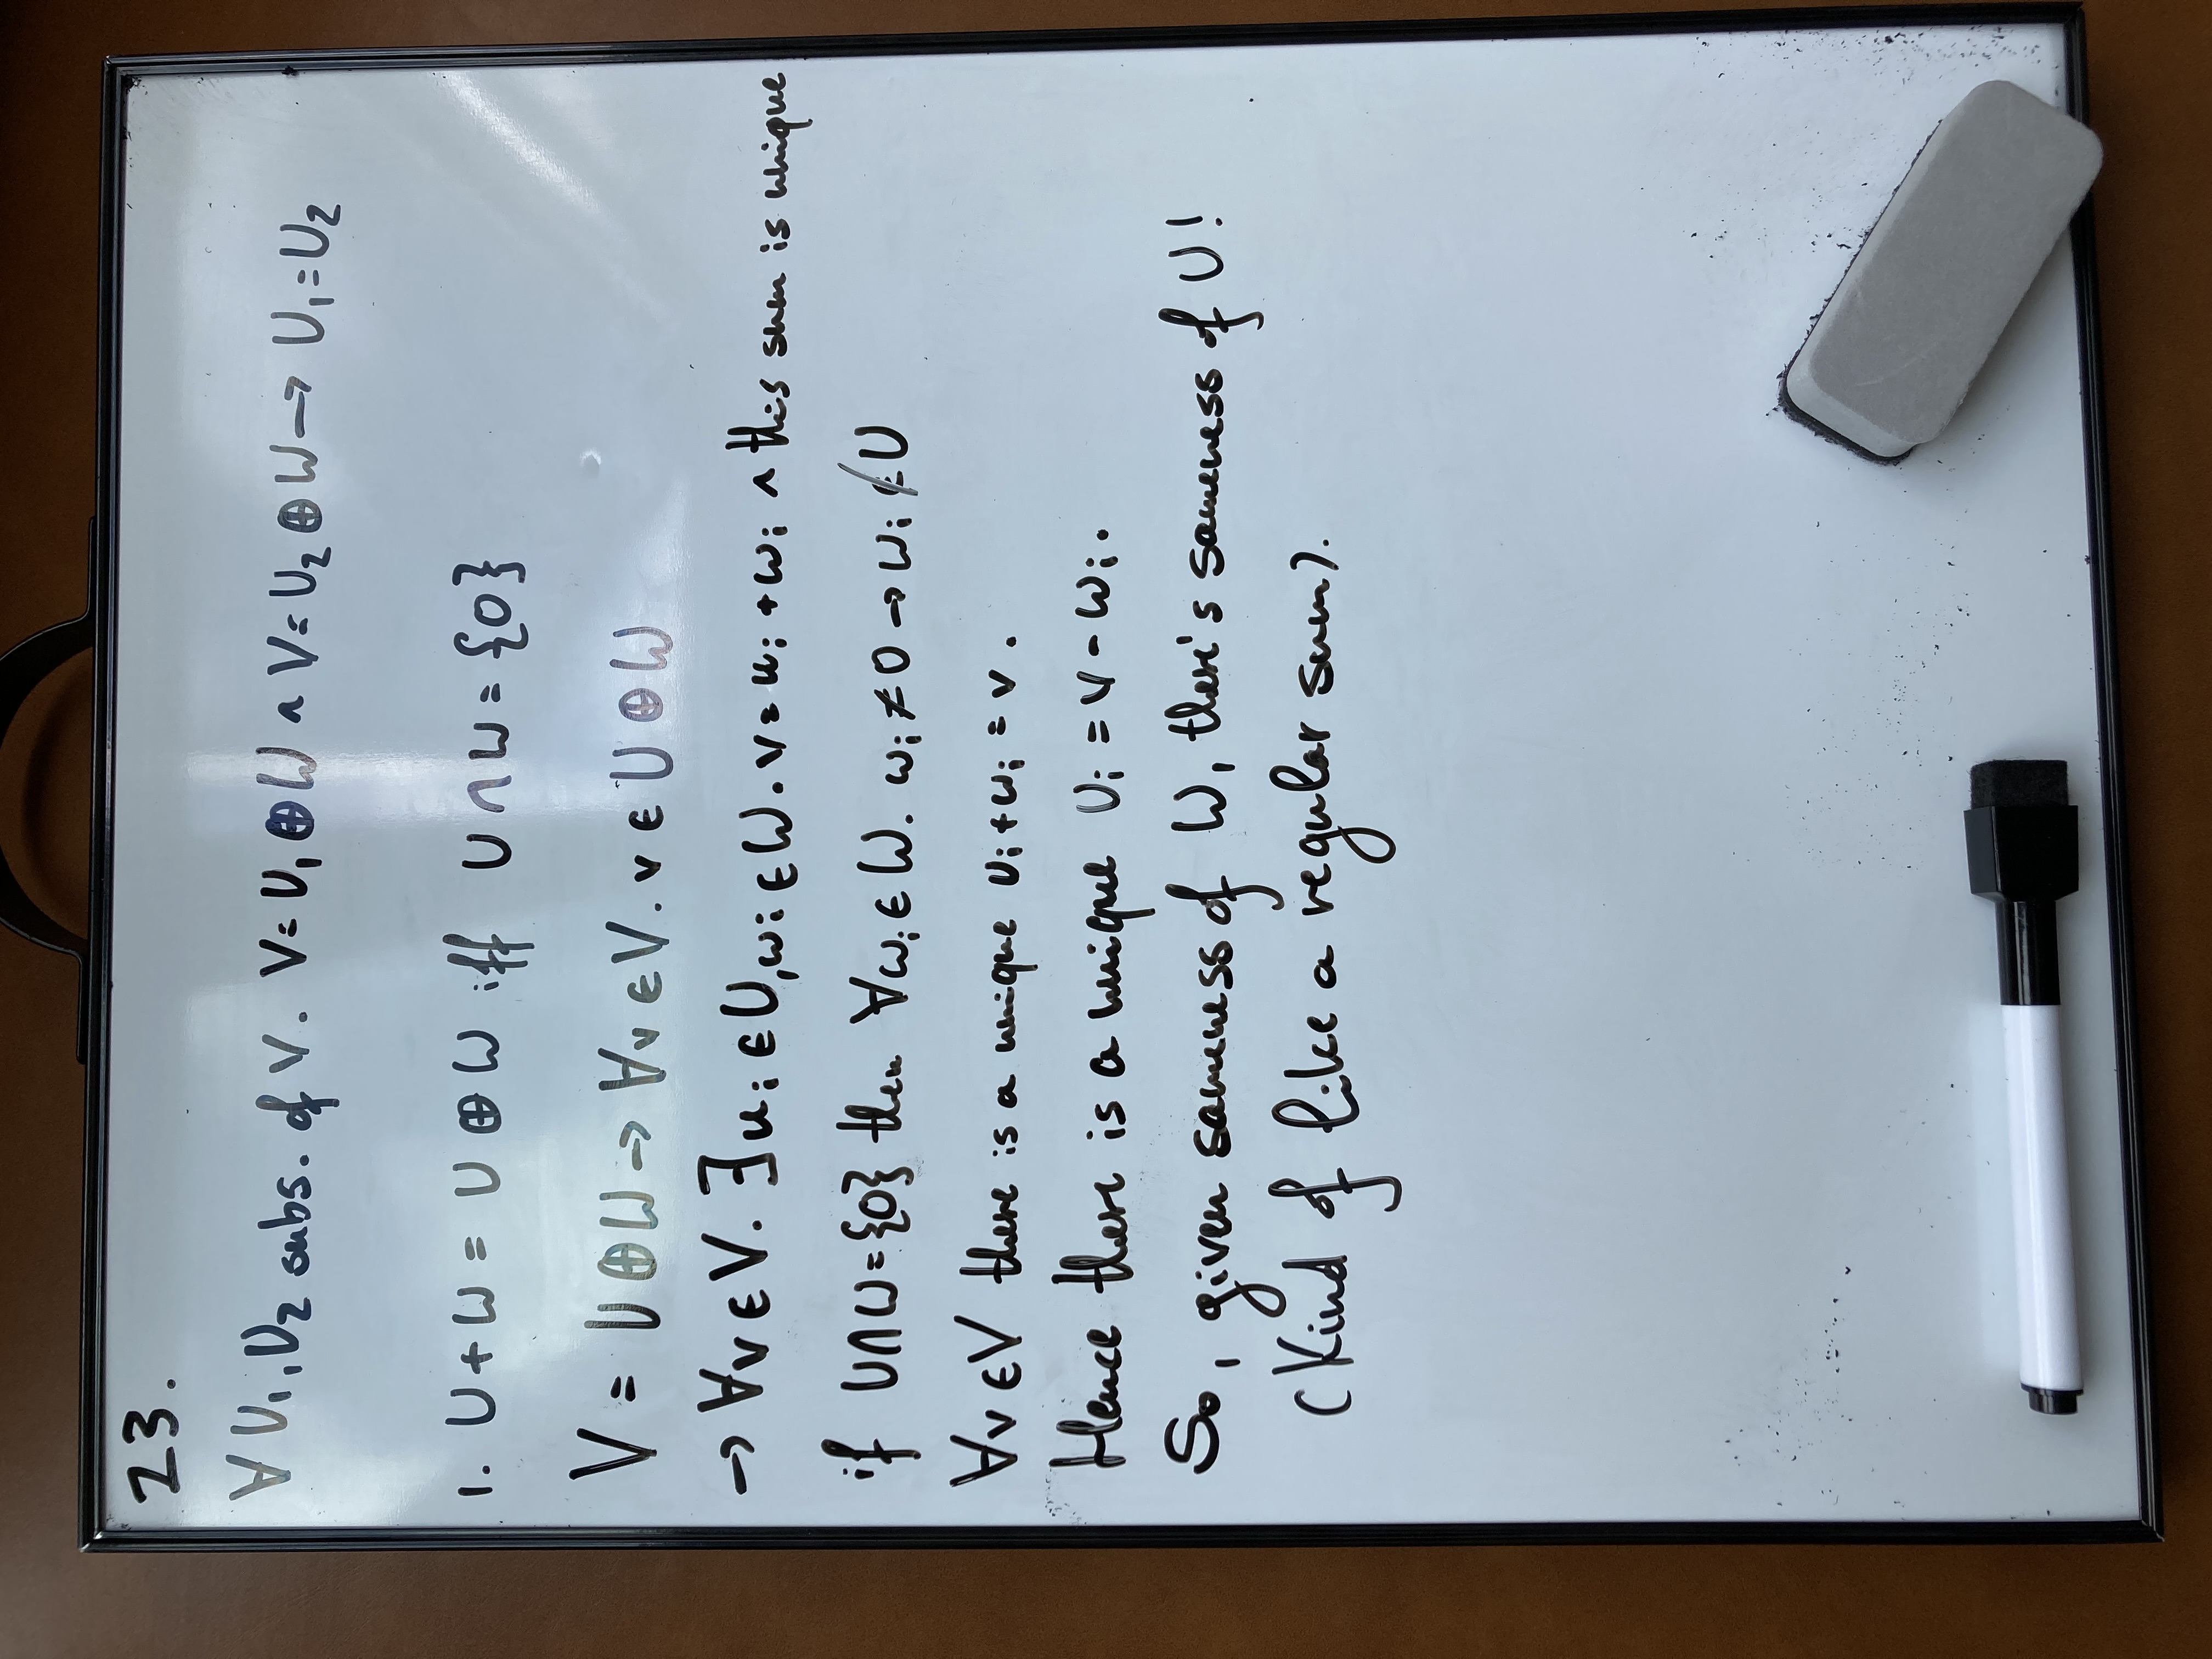 23.
∀ U₁, U₂ subs. of V. V = U₁ ⊕ W ∧ V = U₂ ⊕ W → U₁ = U₂
1. U + W = U ⊕ W iff U ∩ W = {0}
V = U ⊕ W → ∀v ∈ V. v ∈ U ⊕ W
→ ∀v ∈ V. ∃uᵢ ∈ U, wᵢ ∈ W. v = uᵢ + wᵢ ∧ this sum is unique
if U ∩ W = {0} then ∀wᵢ ∈ W. wᵢ ≠ 0 → wᵢ ∉ U
∀v ∈ V there is a unique uᵢ + wᵢ = v.
Hence there is a unique uᵢ = v - wᵢ.
So, given sameness of W, there's sameness of U!
(Kind of like a regular sum).